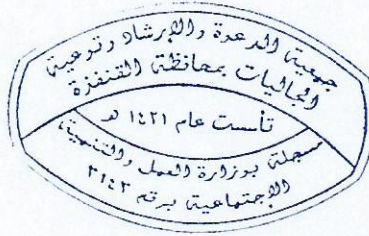 جمعية الدعوة والإرشاد وتوعية
الجاليات بمحافظة القنفذة
تأسست عام ١٤٢١ هـ
مسجلة بوزارة العمل والتنمية
الإجتماعية برقم ٣١٤٣